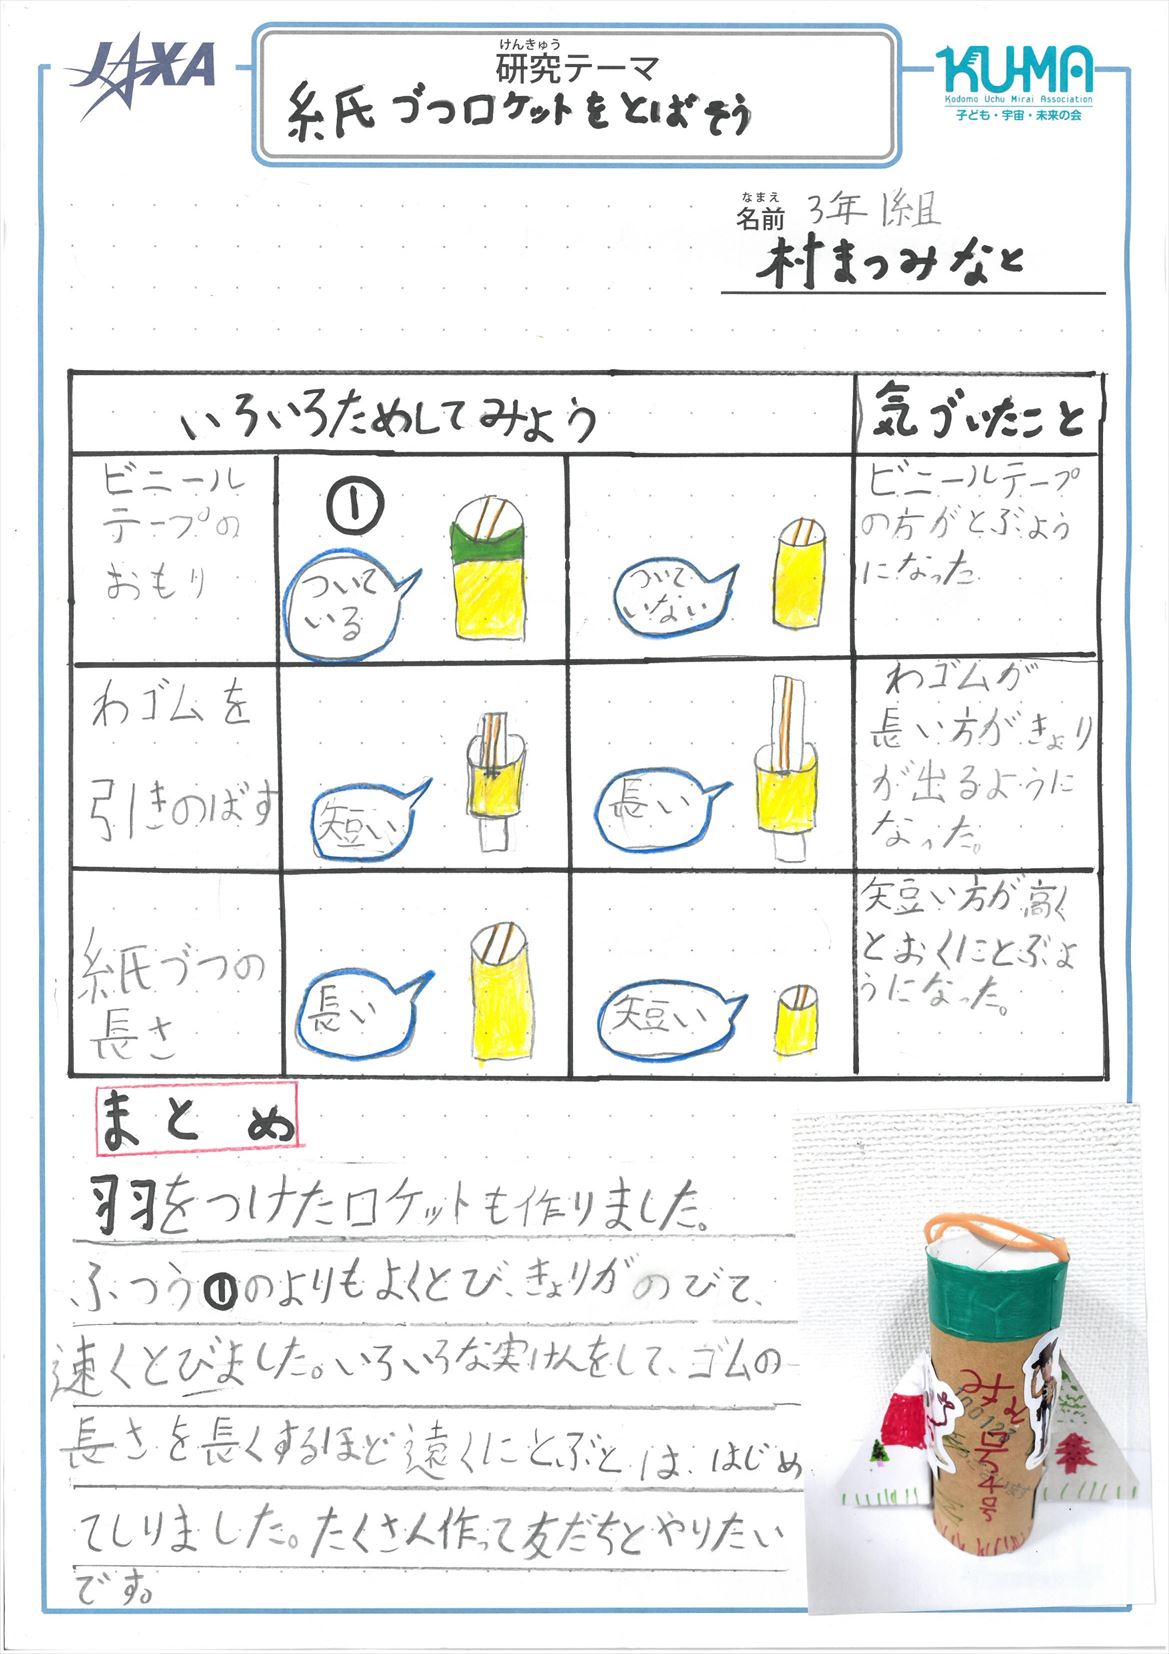 JAXA
けんきゅう
研究テーマ
紙づつロケットをとばそう
KU-MA
Kodomo Uchu Mirai Association
子ども・宇宙・未来の会
なまえ
名前 3年1組
村まつみなと
いろいろためしてみよう
気づいたこと
ビニール
テープの
おもり
①
ついて
いる
ついて
いない
ビニールテープ
の方がとぶよう
になった
わゴムを
引きのばす
短い
長い
わゴムが
長い方がきょり
が出るように
なった。
紙づつの
長さ
長い
短い
短い方が高く
とおくにとぶよ
うになった。
まとめ
羽をつけたロケットも作りました。
ふつう①のよりもよくとび、きょりがのびて、
速くとびました。いろいろな実けんをして、ゴムの
長さを長くするほど遠くにとぶとは、はじめ
てしりました。たくさん作って友だちとやりたい
です。
4号